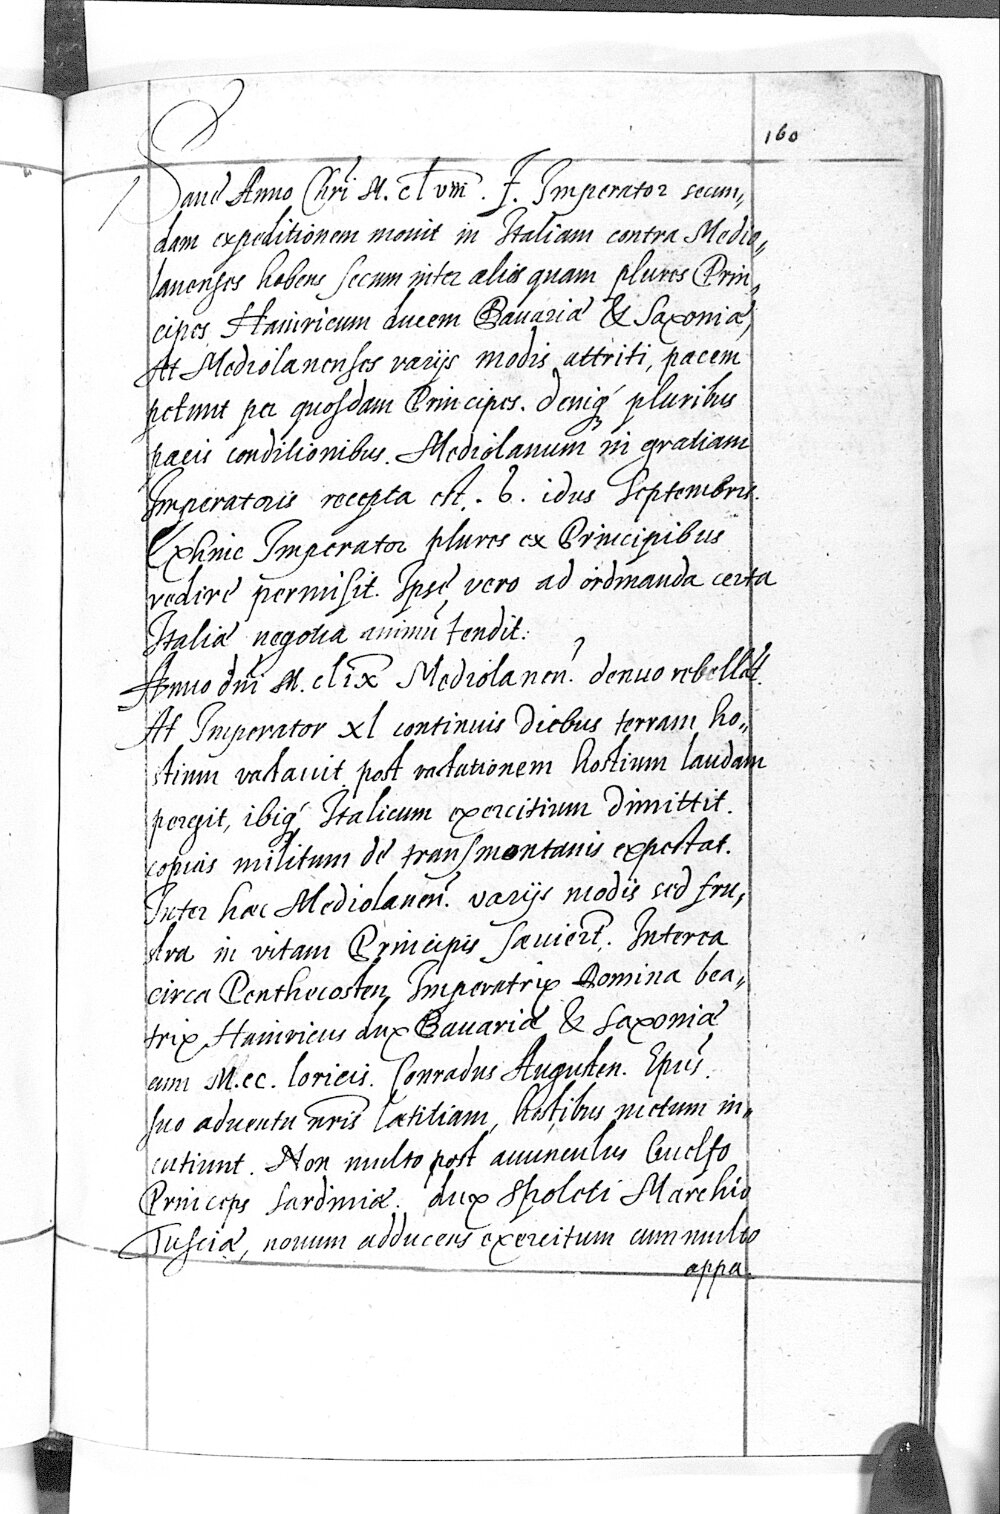 160
Sane Anno Chri̅ M. clviii. F. Imperator secun,,
dam expeditionem mouit in Italiam contra Medio,,
lanenses habens secum inter alios quam plures Prin,,
cipes, Hainricum ducem Bauariæ & Saxoniæ,
At Mediolanenses varijs modis attriti, pacem
petunt per quosdam Principes. deniq́ pluribus
pacis conditionibus. Mediolanum in gratiam
Imperatoris recepta est. 6. idus Septembris.
Exhinc Imperator plures ex Principibus
redire permisit. Ipse vero ad ordinanda certa
Italiæ negotia animū tendit:
Anno dn̅i M. clix Mediolanen̅. denuo rebellāt.
At Imperator xl continuis diebus terram ho,,
stium vastauit post vastationem hostium laudam
pergit, ibiq́ Italicum exercitium dimittit.
copias militum de transmontanis expectat.
Inter hæc Mediolanen̅. varijs modis sed fru,,
stra in vitam Principis sæuiert̅. Interea
circa Penthecosten Imperatrix Domina bea,,
trix Hainricus dux Bauariæ & Saxoniæ
cum M.cc. loricis. Conradus Augusten. Epūs.
suo aduentu nr̅is lætitiam, hostibus metum in,,
cutiunt. Non multo post auunculus Guelfo
Princeps Sardiniæ. dux Spoleti Marchio
Tusciæ, nouum adducens exercitum cum multo
appa